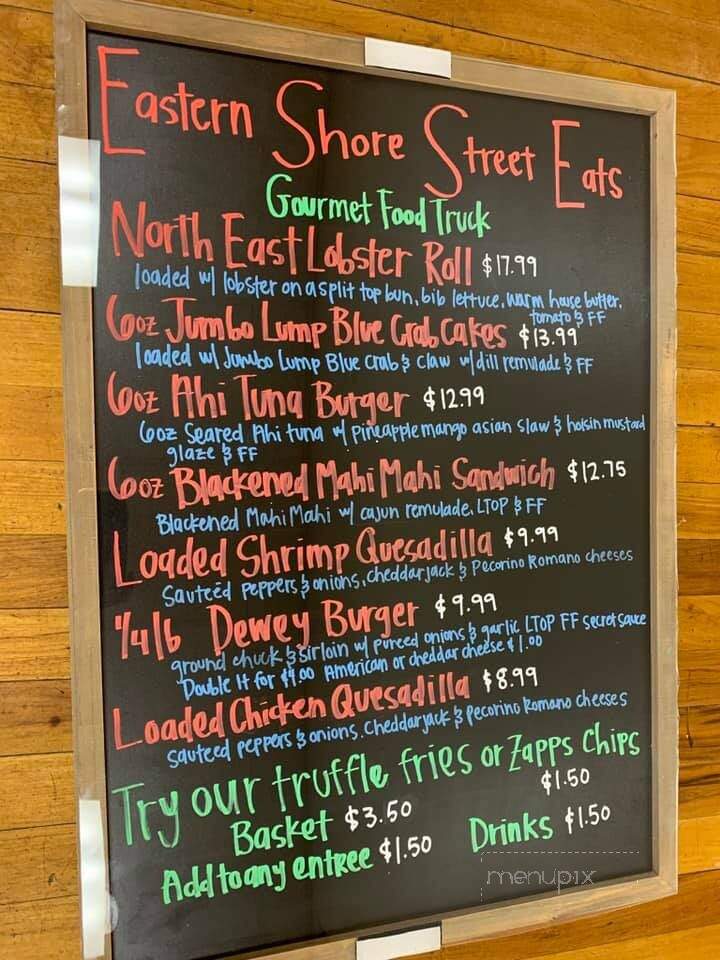 Eastern Shore Street Eats
Gourmet Food Truck
North East Lobster Roll $17.99
loaded w/ lobster on a split top bun, bib lettuce, warm house butter,
tomato & FF
6oz Jumbo Lump Blue Crab Cakes $13.99
loaded w/ Jumbo Lump Blue Crab & Claw w/ dill remulade & FF
6oz Ahi Tuna Burger $12.99
6oz Seared Ahi tuna w/ pineapple mango asian slaw & hoisin mustard
glaze & FF
6oz Blackened Mahi Mahi Sandwich $12.75
Blackened Mahi Mahi w/ cajun remulade, LTOP & FF
Loaded Shrimp Quesadilla $9.99
Sauteéd peppers & onions, cheddarjack & Pecorino Romano cheeses
1/4 lb Dewey Burger $9.99
ground chuck & sirloin w/ pureed onions & garlic LTOP FF secret sauce
Double It for $4.00 American or cheddar cheese $1.00
Loaded Chicken Quesadilla $8.99
sauteed peppers & onions, Cheddarjack & pecorino Romano cheeses
Try our truffle fries or Zapps Chips
$1.50
Basket $3.50
Drinks $1.50
Add to any entree $1.50
menupix